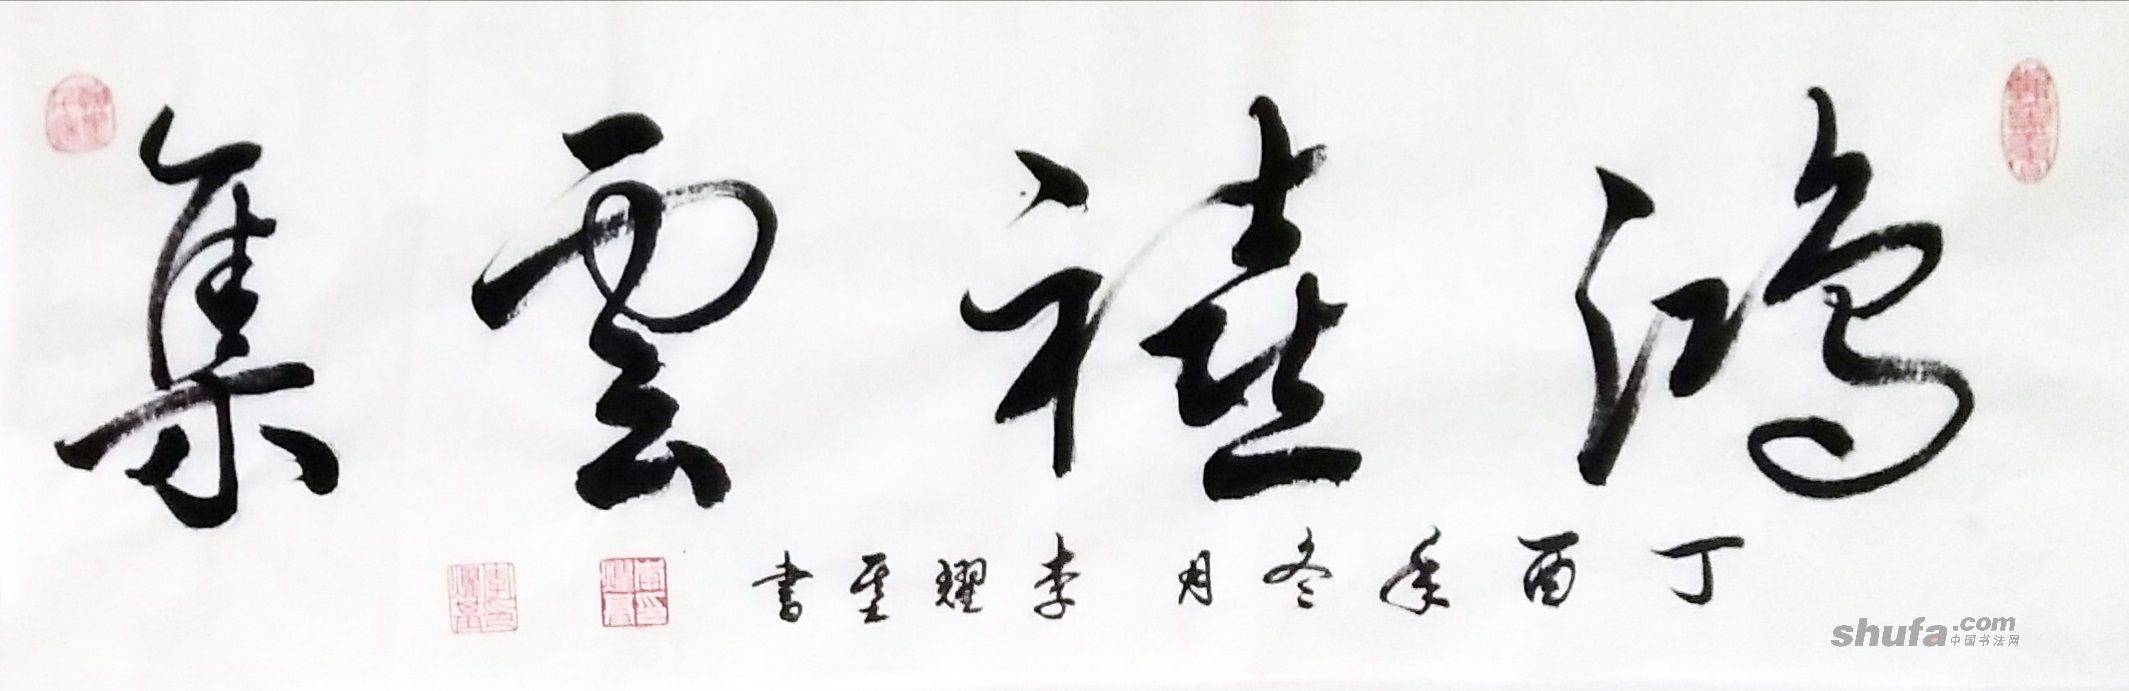 鴻禧雲集
丁酉年冬月李耀里書
shufa.com
中国书法网